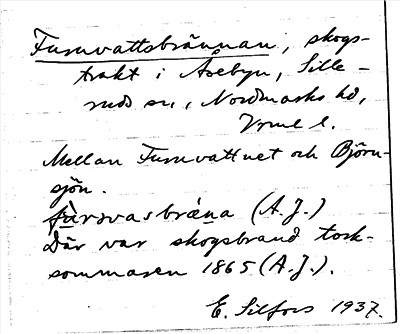 Furuvattsbrännan, skogs-
trakt i Åsebyn, Sille-
ruds sn, Nordmarks hd,
Vrml l.
Mellan Furuvattnet och Björn-
sjön.
Där var skogsbrand tork-
sommaren 1865 (A.J.).
E. Silfors 1937.